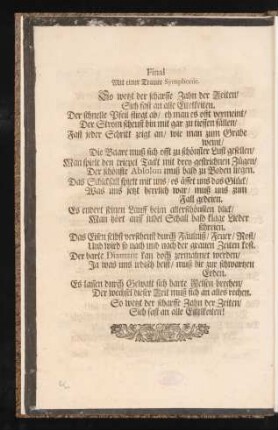 Final
Mit einer Trauer Symphonie.
So wetzt der scharffe Zahn der Zeiten/
Sich fast an alle Eitelkeiten.
Der schnelle Pfeil fliegt ab/ eh man es offt vermeint/
Der Strom scheust hin mit gar zu
Fast jeder Schritt zeigt an/ wie man zum Grabe
weint/
Die Baare muß sich offt zu schönster Lust gesellen/
Man spielt den Tact mit drey gestrichnen Zügen/
Der schönste Absolon muß bald zu Boden liegen.
Das Schicksal spielt mit uns/ es äfft uns das Glück/
Was uns jetzt herrlich war/ muß uns zum
Fall gedeien.
Es endert seinen Lauff beim allerschönsten blick/
Man hört auf Schall bald klage Lieder
schreien.
Das Eisen selbst verschleust durch Fäulnis/ Feuer/ Rost/
Und wird so nach und nach der grauen Zeiten kost.
Der harte Diamant kan doch zermalmet werden/
Ja was uns irdisch heist/ muß hir zur schwartzen
Erden.
Es lassen durch Gewalt sich harte Felsen brechen/
Der wechsel dieser Zeit muß sich an alles rechen.
So wetzt der scharffe Zahn der Zeiten/
Sich fast an alle Eitelkeiten!